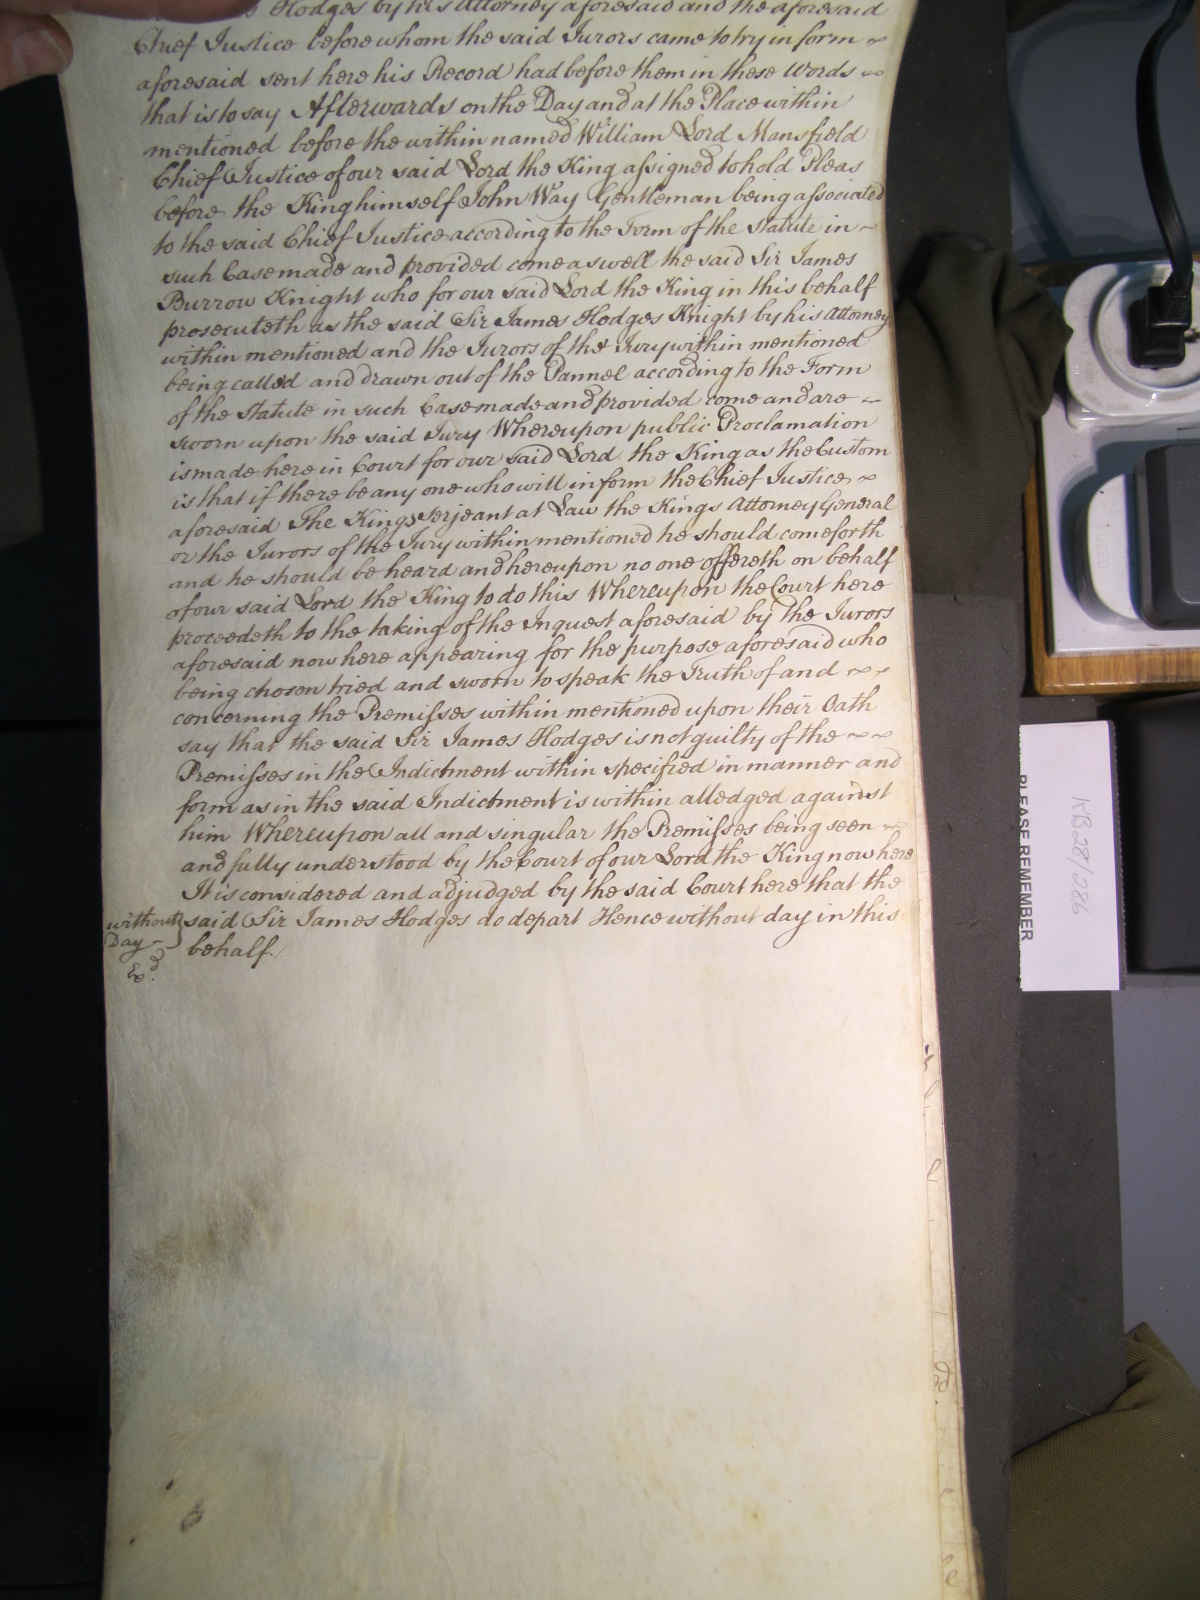 Hodges by his Attorney aforesaid and the aforesaid
Chief Justice before whom the said Jurors came to try in form
aforesaid sent here his Record had before them in these Words
that is to say Afterwards on the Day and at the Place within
mentioned before the within named William Lord Mansfield
Chief Justice of our said Lord the King assigned to hold Pleas
before the King himself John Way Gentleman being associated
to the said Chief Justice according to the Form of the Statute in
such Case made and provided come as well the said Sir James
Burrow Knight who for our said Lord the King in this behalf
prosecuteth as the said Sir James Hodges Knight by his Attorney
within mentioned and the Jurors of the Jury within mentioned
being called and drawn out of the Pannel according to the Form
of the Statute in such Case made and provided come and are
sworn upon the said Jury Whereupon public Proclamation
is made here in Court for our said Lord the King as the Custom
is that if there be any one who will inform the Chief Justice
aforesaid The Kings Serjeant at Law the Kings Attorney General
or the Jurors of the Jury within mentioned he should come forth
and he should be heard and hereupon no one offereth on behalf
of our said Lord the King to do this Whereupon the Court here
proceedeth to the taking of the Inquest aforesaid by the Jurors
aforesaid now here appearing for the purpose aforesaid who
being chosen tried and sworn to speak the Truth of and
concerning the Premisses within mentioned upon their Oath
say that the said Sir James Hodges is not guilty of the
Premisses in the Indictment within specified in manner and
form as in the said Indictment is within alledged against
him Whereupon all and singular the Premisses being seen
and fully understood by the Court of our Lord the King now here
It is considered and adjudged by the said Court here that the
said Sir James Hodges do depart Hence without day in this
behalf.
without
Day
Exd.
KB28/286
PLEASE REMEMBER